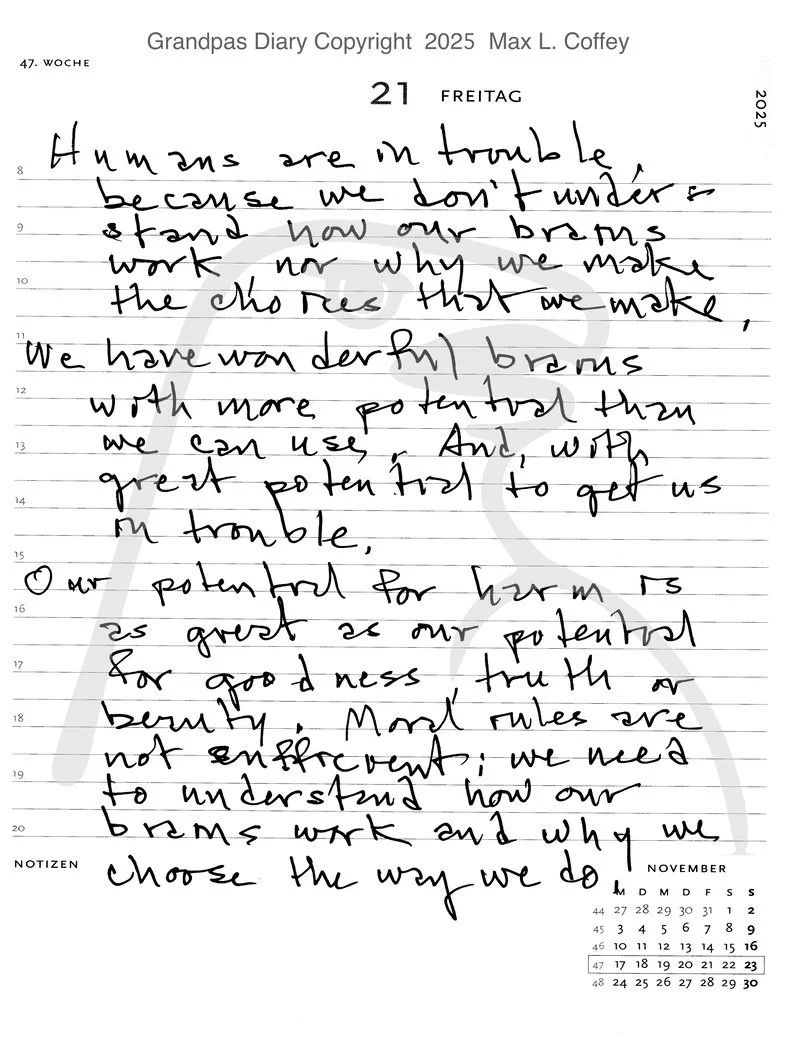 Grandpas Diary Copyright 2025 Max L. Coffey
47. WOCHE
21 FREITAG
2025
8
Humans are in trouble,
because we don't under-
9
stand how our brains
work, nor why we make
10
the choices that we make,
11
We have wonderful brains
12
with more potential than
13
we can use. And, with
great potential to get us
14
in trouble.
15
Our potential for harm is
16
as great as our potential
17
for goodness, truth or
beauty. Moral rules are
18
not sufficient; we need
19
to understand how our
20
brains work and why we
choose the way we do!
NOTIZEN
NOVEMBER
M D M D F S S
44 27 28 29 30 31 1 2
45 3 4 5 6 7 8 9
46 10 11 12 13 14 15 16
47 17 18 19 20 21 22 23
48 24 25 26 27 28 29 30